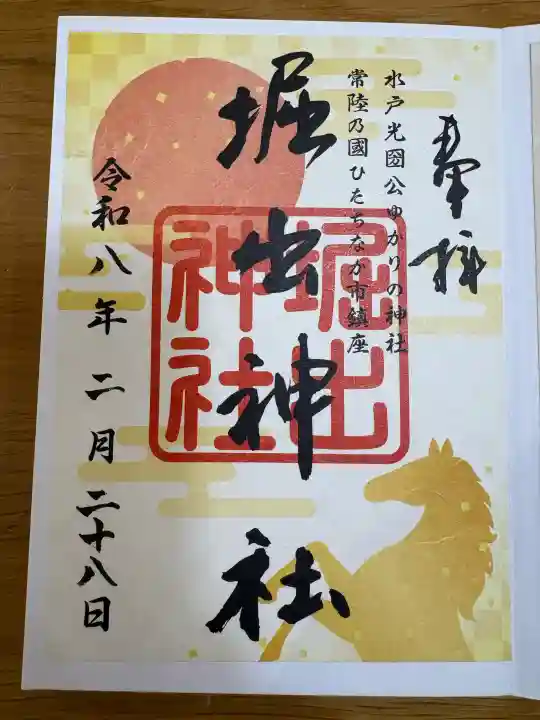 奉拝
水戸光圀公ゆかりの神社
常陸乃國ひたちなか市鎮座
堀出神社
堀出
神社
令和八年二月二十八日